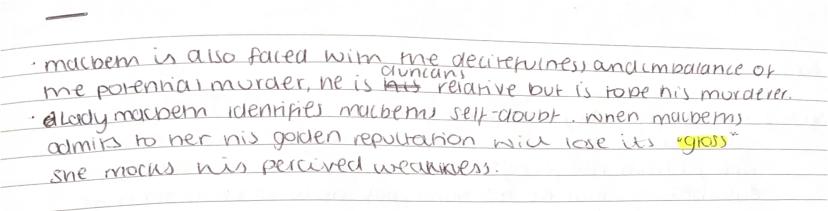 · macbeth is also faced with the decitefulness and imbalance of
the potential murder, he is duncans relative but is to be his murderer.
· Lady macbeth identifies macbeths self-doubt. when macbeths
admits to her his golden repultation will lose its "gloss"
she mocks his percived weakness.